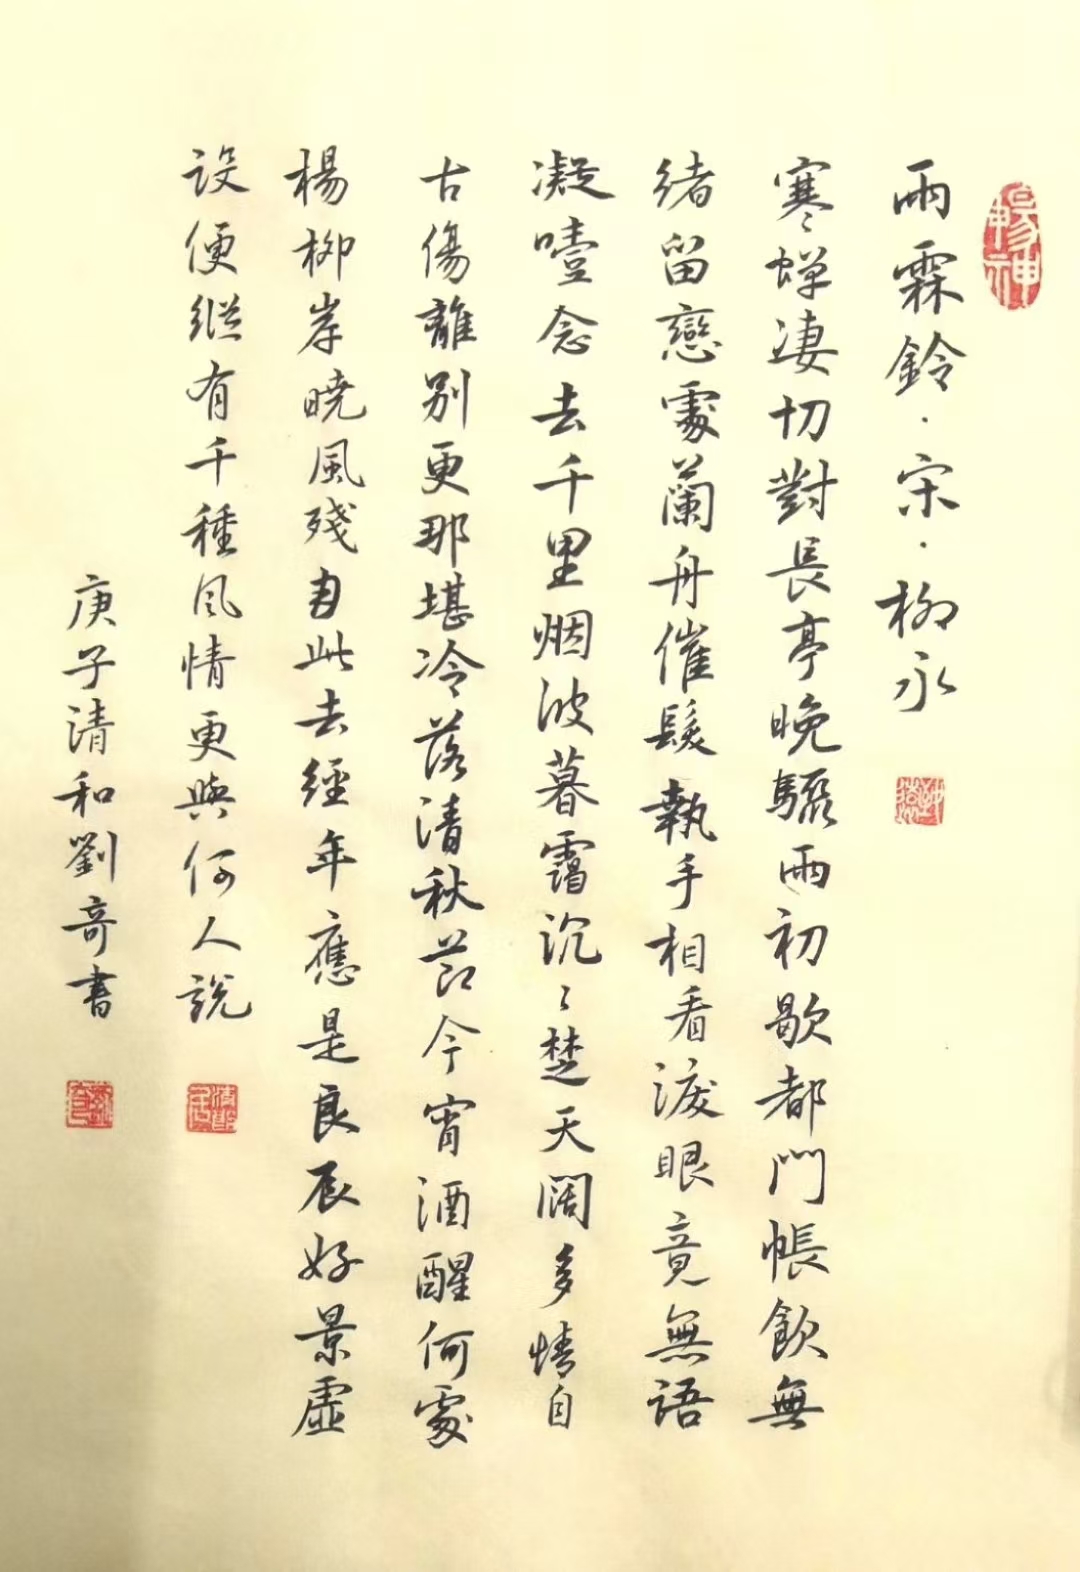 暢神
雨霖鈴·宋·柳永
寒蟬凄切對長亭晚驟雨初歇都門帳飲無
緒留戀處蘭舟催髮執手相看淚眼竟無語
凝噎念去千里烟波暮靄沉〻楚天闊多情自
古傷離別更那堪冷落清秋節今宵酒醒何處
楊柳岸曉風殘月此去經年應是良辰好景虛
設便縱有千種風情更與何人說
庚子清和劉奇書
劉奇